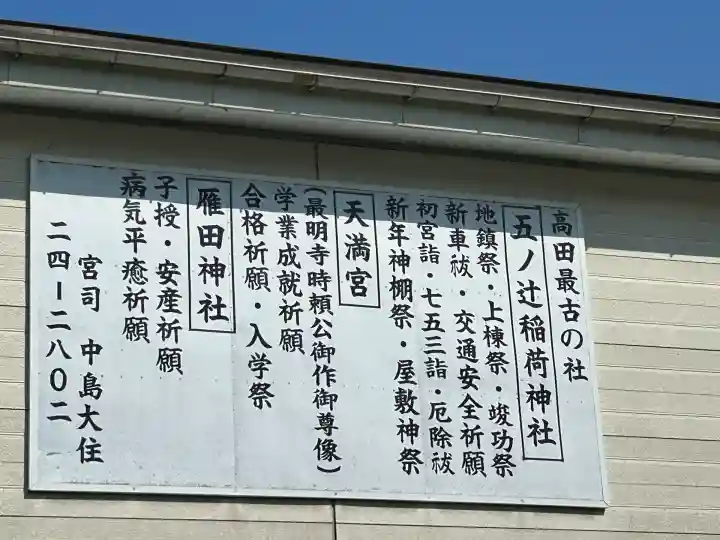 高田最古の社
五ノ辻稲荷神社
地鎮祭・上棟祭・竣功祭
新車祓・交通安全祈願
初宮詣・七五三詣・厄除祓
新年神棚祭・屋敷神祭
天満宮
(最明寺時頼公御作御尊像)
学業成就祈願
合格祈願・入学祭
雁田神社
子授・安産祈願
病気平癒祈願
宮司 中島大住
二四ー二八〇二